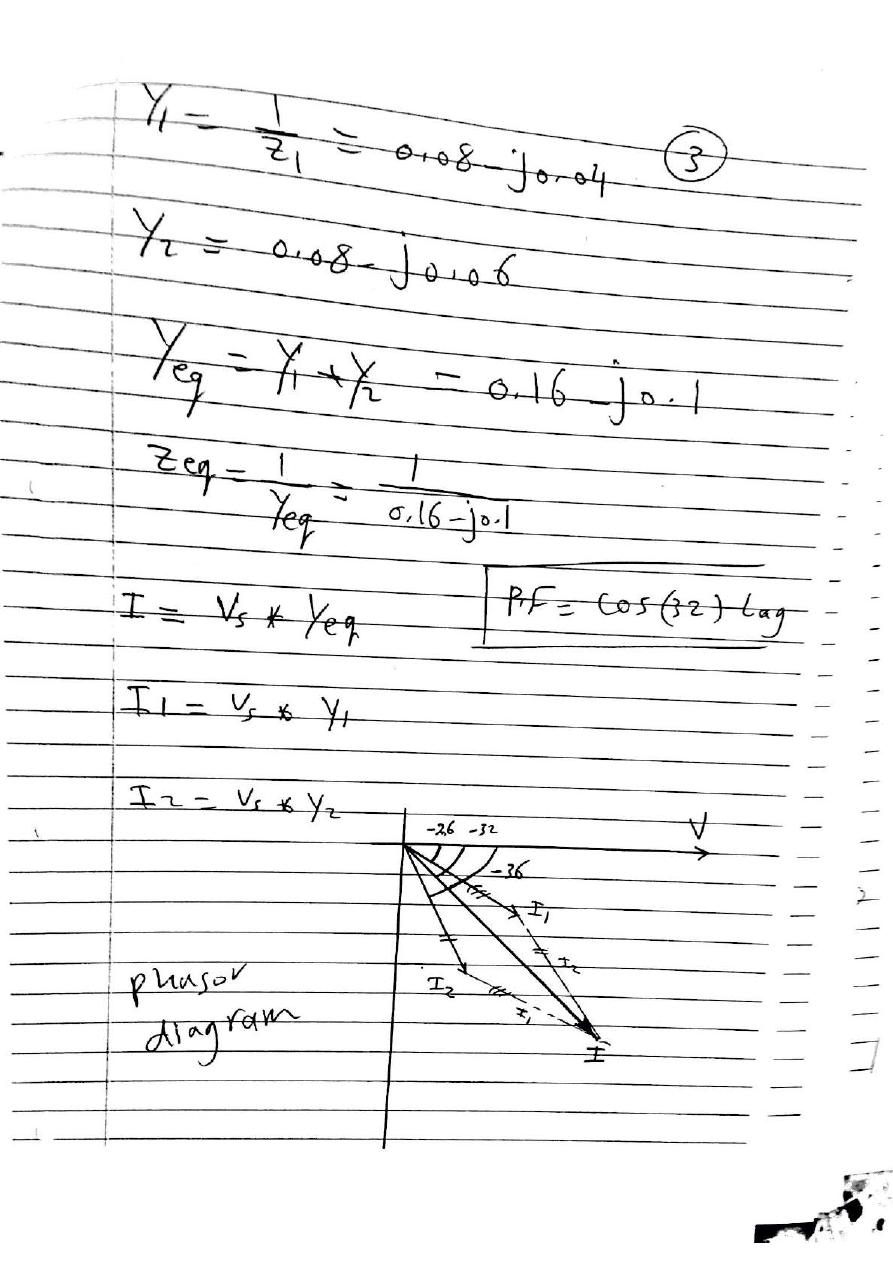 Y₁ = 1/Z₁ = 0.08 - j0.04 ③
Y₂ = 0.08 - j0.06
Yeq = Y₁ + Y₂ = 0.16 - j0.1
Zeq = 1/Yeq = 1/(0.16 - j0.1)
I = Vs * Yeq
P.F = cos(32) Lag
I1 = Vs * Y₁
I2 = Vs * Y₂
-26 -32
V
-36
I₁
I₂
I₂
I₁
I
phasor
diagram